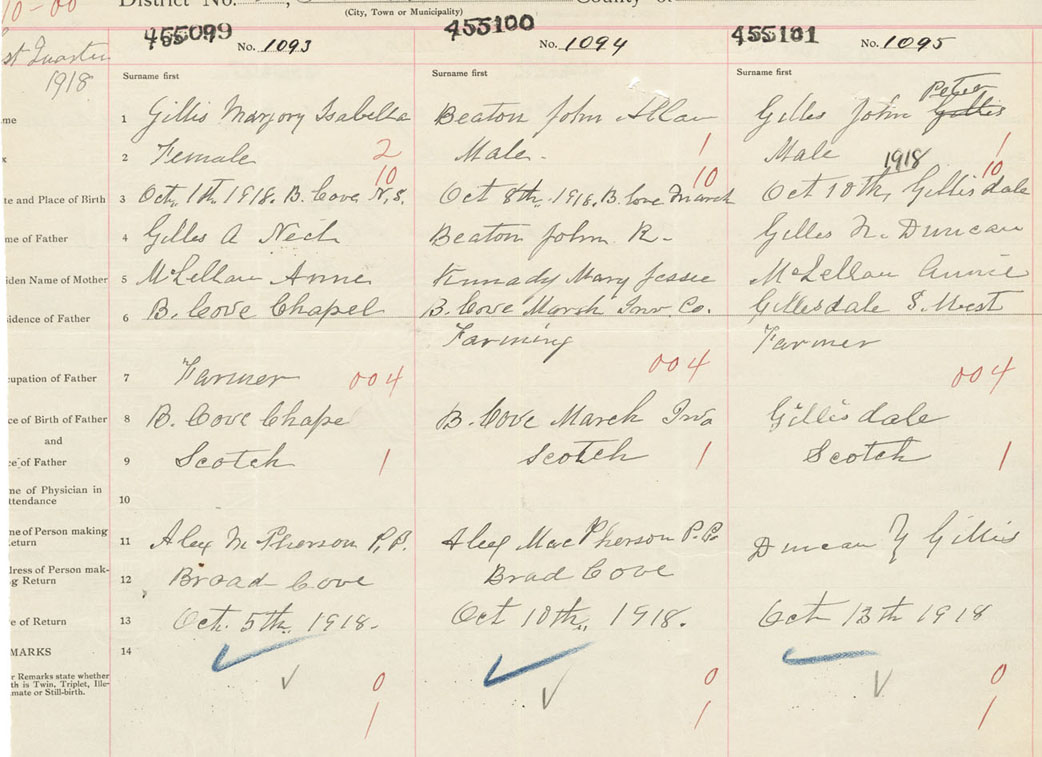 10-00 District No. County of
(City, Town or Municipality)
455099 No. 1093 455100 No. 1094 455101 No. 1095
st Quarter
1918
Surname first Surname first Surname first
Peter
me 1 Gillis Marjory Isabella Beaton John Allan Gilles John Gillis
x 2 Female 2 Male. 1 Male 1
10 10 1918 10
te and Place of Birth 3 Oct, 1th. 1918. B. Cove N.S. Oct 8th. 1918. B. Cove March Oct 10th, Gillisdale
me of Father 4 Gilles A Neil Beaton John R. Gilles N. Duncan
iden Name of Mother 5 McLellan Anne Kennady Mary Jessie McLellan Annie
sidence of Father 6 B. Cove Chapel B. Cove Marsh Inv. Co. Gillesdale S. West
Farming Farmer
cupation of Father 7 Farmer 004 004 004
ce of Birth of Father 8 B. Cove Chape B. Cove March Inva Gillisdale
and
ce of Father 9 Scotch 1 Scotch 1 Scotch 1
me of Physician in
ttendance 10
me of Person making
Return 11 Alex McPherson P.P. Alex MacPherson P.P. Duncan Gillis
dress of Person mak-
ng Return 12 Broad Cove Brad Cove
e of Return 13 Oct. 5th. 1918. Oct 10th,. 1918. Oct 13th 1918
MARKS 14
r Remarks state whether
th is Twin, Triplet, Ille-
mate or Still-birth.
0 0 0
1 1 1